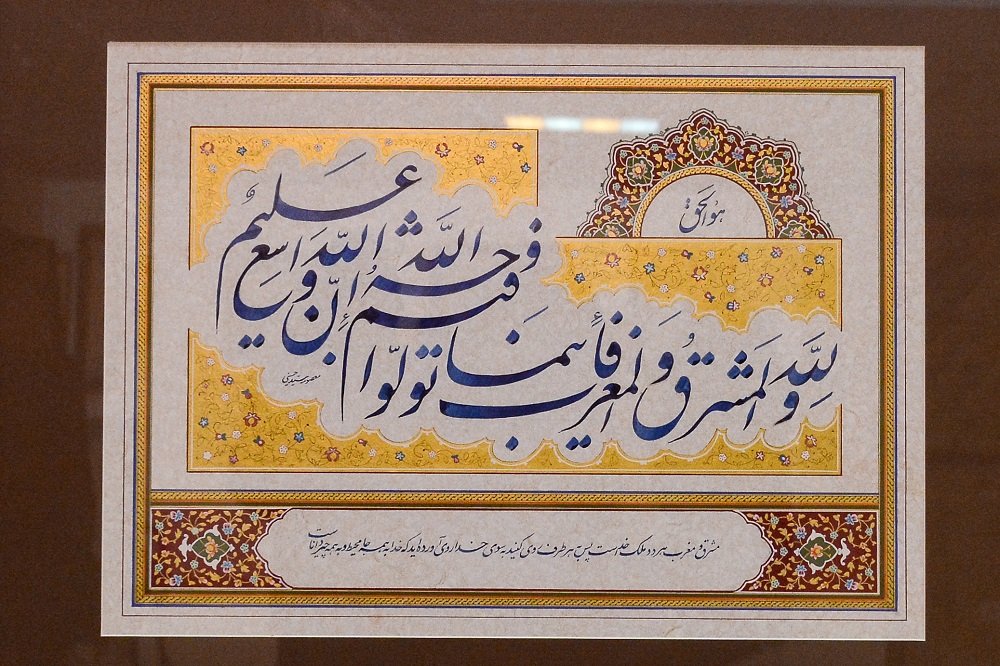 هو الحق
وَلِلّهِ المشرق وَالمغرب فأینما تولّوا فثم وجه اللّه إنّ اللّه وَاسِع عَلیم
سید حسینی
مشرق و مغرب هر دو ملک خداست پس به هر طرف روی کنید به سوی خدا روی آورده‌اید که خدا به همه جا محیط و به همه چیز داناست